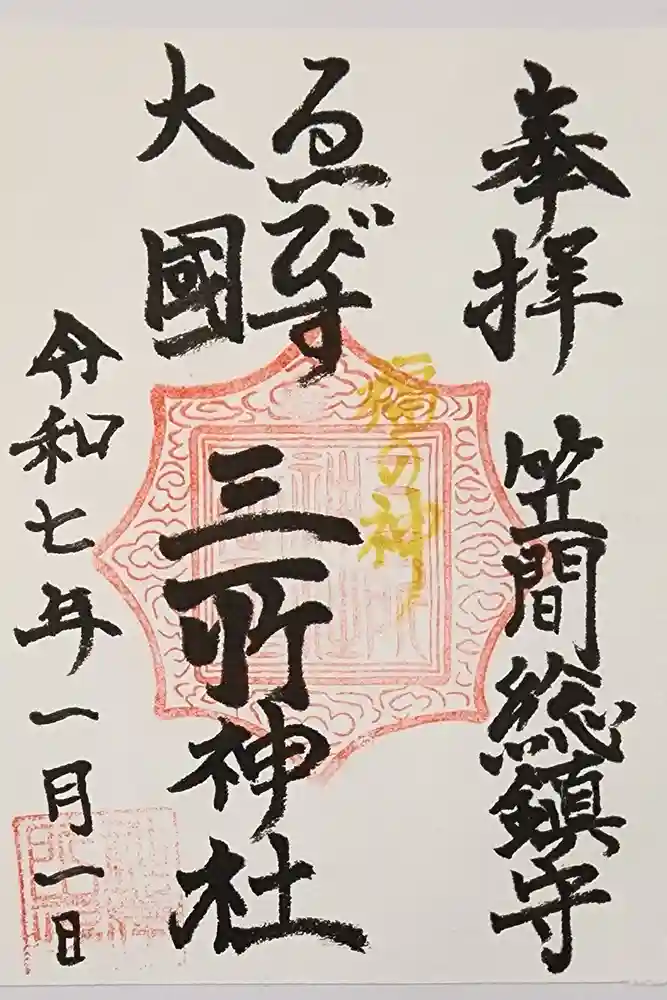 奉拝
笠間総鎮守
ゑびす
大國
三所神社
福の神
令和七年一月一日